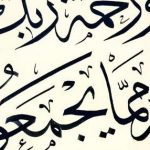 ورحمة ربك
مما يجمعو